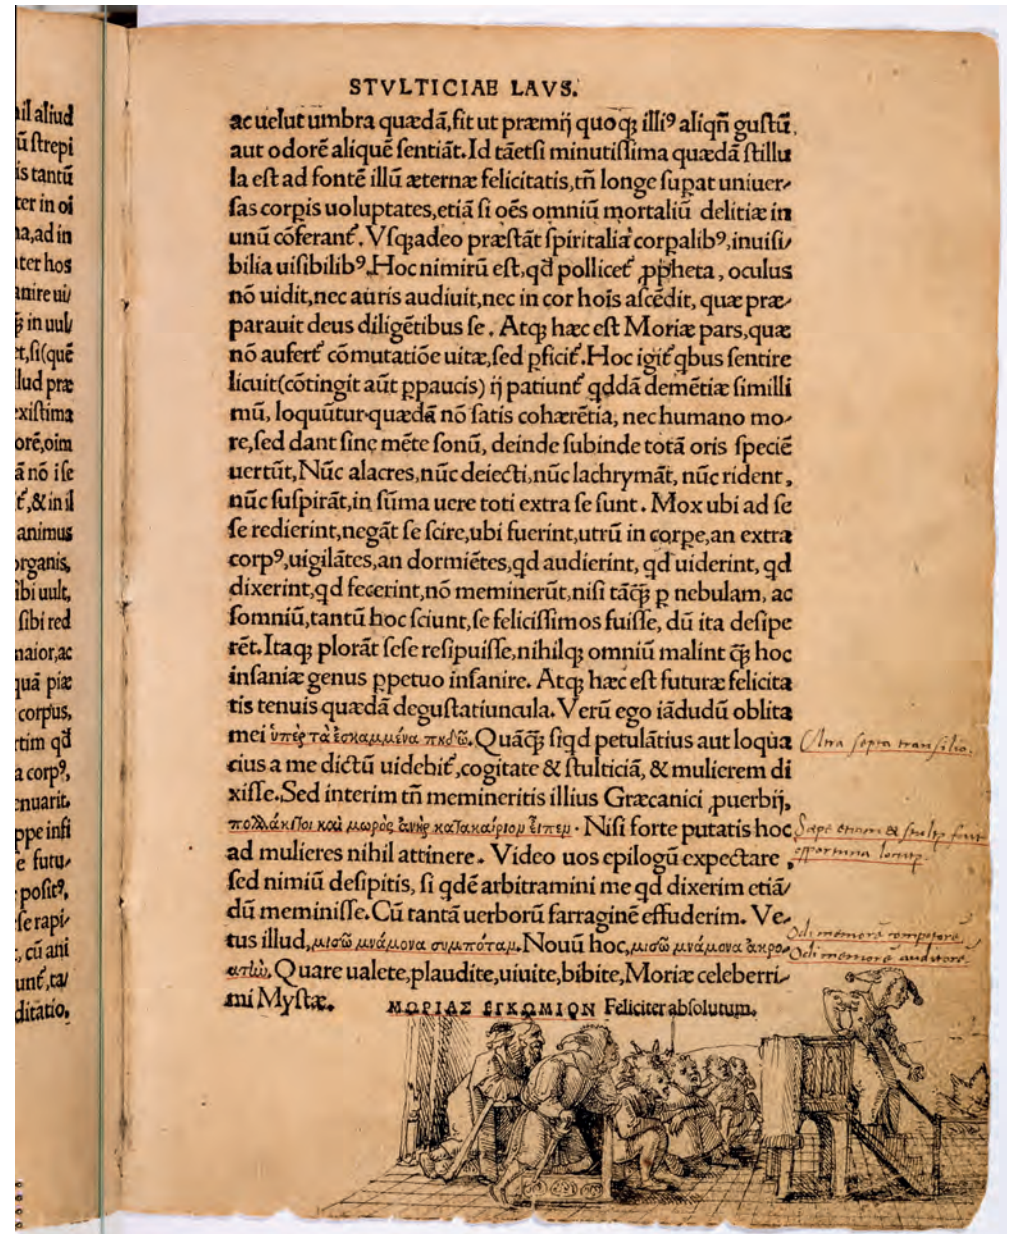 il aliud
ũ ſtrepi
is tantũ
ter in oĩ
na,ad in
ter hos
anire ui/
in uul/
et,ſi(quẽ
llud præ
exiſtima
orẽ,oim
ã nõ i ſe
,&in il
animus
organis,
ibi uult,
ſibi red
maior,ac
quã piæ
corpus,
rtim qđ
a corpꝰ,
enuarit.
ppe infi
e futu/
poſitꝰ,
ſe rapi/
, cũ ani
unt̃,ta/
ditatio,
STVLTICIAE LAVS.
ac uelut umbra quædã,fit ut præmij quoqꝫ illiꝰ aliqñ guſtũ,
aut odorẽ aliquẽ ſentiãt.Id tãetſi minutiſſima quædã ſtillu
la eſt ad fontẽ illũ æternæ felicitatis,tñ longe ſuꝑat uniuer/
ſas corꝑis uoluptates,etiã ſi oẽs omniũ mortaliũ delitiæ in
unũ cõferant̃.Vſqꝫadeo præſtãt ſpiritalia corꝑalibꝰ,inuiſi/
bilia uiſibilibꝰ.Hoc nimirũ eſt,qđ pollicet̃ ꝓpheta, oculus
nõ uidit,nec auris audiuit,nec in cor hoĩs aſcẽdit, quæ præ/
parauit deus diligẽtibus ſe. Atqꝫ hæc eſt Moriæ pars,quæ
nõ aufert̃ cõmutatiõe uitæ,ſed ꝑficit̃.Hoc igit̃ qbus ſentire
licuit(cõtingit aũt ꝑpaucis) ij patiunt̃ qddã demẽtiæ ſimilli
mũ, loquũtur quædã nõ ſatis cohærẽtia, nec humano mo/
re,ſed dant ſine mẽte ſonũ, deinde ſubinde totã oris ſpeciẽ
uertũt,Nũc alacres,nũc deiecti,nũc lachrymãt, nũc rident,
nũc ſuſpirãt,in ſũma uere toti extra ſe ſunt. Mox ubi ad ſe
ſe redierint,negãt ſe ſcire,ubi fuerint,utrũ in corꝑe,an extra
corpꝰ,uigilãtes,an dormiẽtes,qd audierint, qd uiderint, qd
dixerint,qd fecerint,nõ meminerũt,niſi tãq̃ꝫ ꝑ nebulam, ac
ſomniũ,tantũ hoc ſciunt,ſe feliciſſimos fuiſſe, dũ ita deſipe
rẽt.Itaqꝫ plorãt ſeſe reſipuiſſe,nihilqꝫ omniũ malint q̃ꝫ hoc
inſaniæ genus ꝑpetuo inſanire. Atqꝫ hæc eſt futuræ felicita
tis tenuis quædã deguſtatiuncula. Verũ ego iãdudũ oblita
mei ὑπὲρ τὰ ἐσκαμμένα πηδῶ.Quãq̃ꝫ ſiqd petulãtius aut loqua
cius a me dictũ uidebit̃,cogitate & ſtulticiã, & mulierem di
xiſſe.Sed interim tñ memineritis illius Græcanici ꝓuerbij,
πολλάκι τοι καὶ μωρὸς ἀνὴρ κατακαίριον εἶπεν. Niſi forte putatis hoc
ad mulieres nihil attinere. Video uos epilogũ expectare,
ſed nimiũ deſipitis, ſi qdẽ arbitramini me qd dixerim etiã/
dũ meminiſſe.Cũ tantã uerborũ farraginẽ effuderim. Ve/
tus illud,μισῶ μνάμονα συμπόταν.Nouũ hoc,μισῶ μνάμονα ἀκρο/
ατήν.Quare ualete,plaudite,uiuite,bibite,Moriæ celeberri/
mi Myſtæ.
ΜΩΡΙΑΣ ΕΓΚΩΜΙΟΝ Feliciter abſolutum.
septa transilio.
Sæpe etiam & stultus fuit
opportuna locutus.
Odi memorẽ compotorẽ
Odi memorẽ auditorẽ